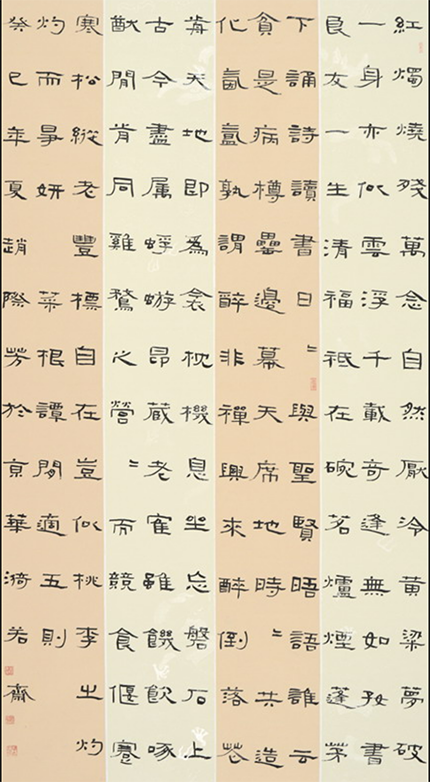 紅燭燒殘萬念自然厭冷黃梁夢破
一身亦似雲浮千載奇逢無如好書
良友一生清福祇在碗茗爐煙蓬茅
下誦詩讀書日〻與聖賢晤語誰云
貧是病樽罍邊幕天席地時〻共造
化氤氳孰謂醉非禪興來醉倒落花
前天地即為衾枕機息坐忘磐石上
古今盡屬蜉蝣昂藏老寉雖饑飲啄
猶閒肯同雞鶩之營〻而競食偃蹇
寒松縱老豐標自在豈似桃李之灼
灼而爭妍 菜根譚閒適五則
癸巳年夏趙際芳於京華漪若齋